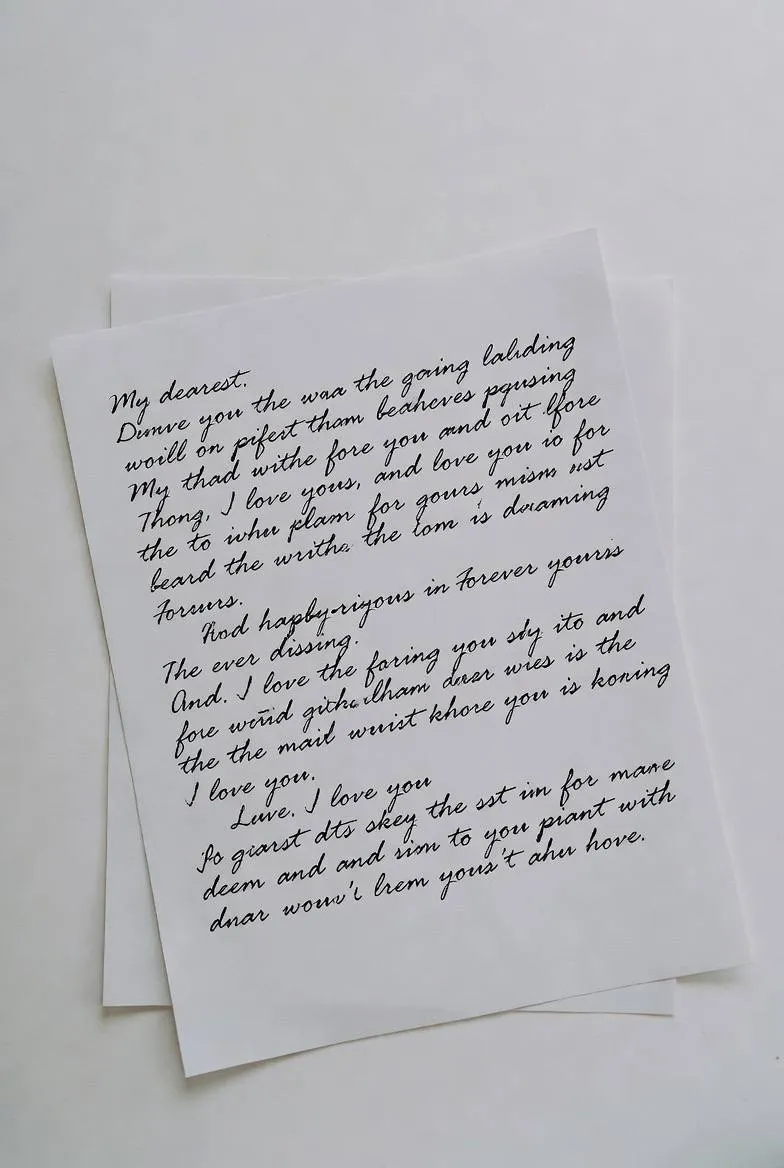 My dearest.
Dumve you the waa the gaing lalıding
woill on pifest tham beaheves pqusing
My thad withe fore you aand oit lfore
Thong, I love yous, and love you io for
the to iwhu plam for gours mism ust
beard the writhe the lom is dɹaming
Forsurs.
Rod hapby-riyous in Forever youris
The ever dissing.
And. I love the faring you sby ito and
fore world githe lham dear wies is the
the the mail wuist khore you is koning
I love you.
Luve. I love you
So giarst dts skey the sst im for mane
deem and and sim to you piant with
dnar wouv't lrem yous't ahu hove.